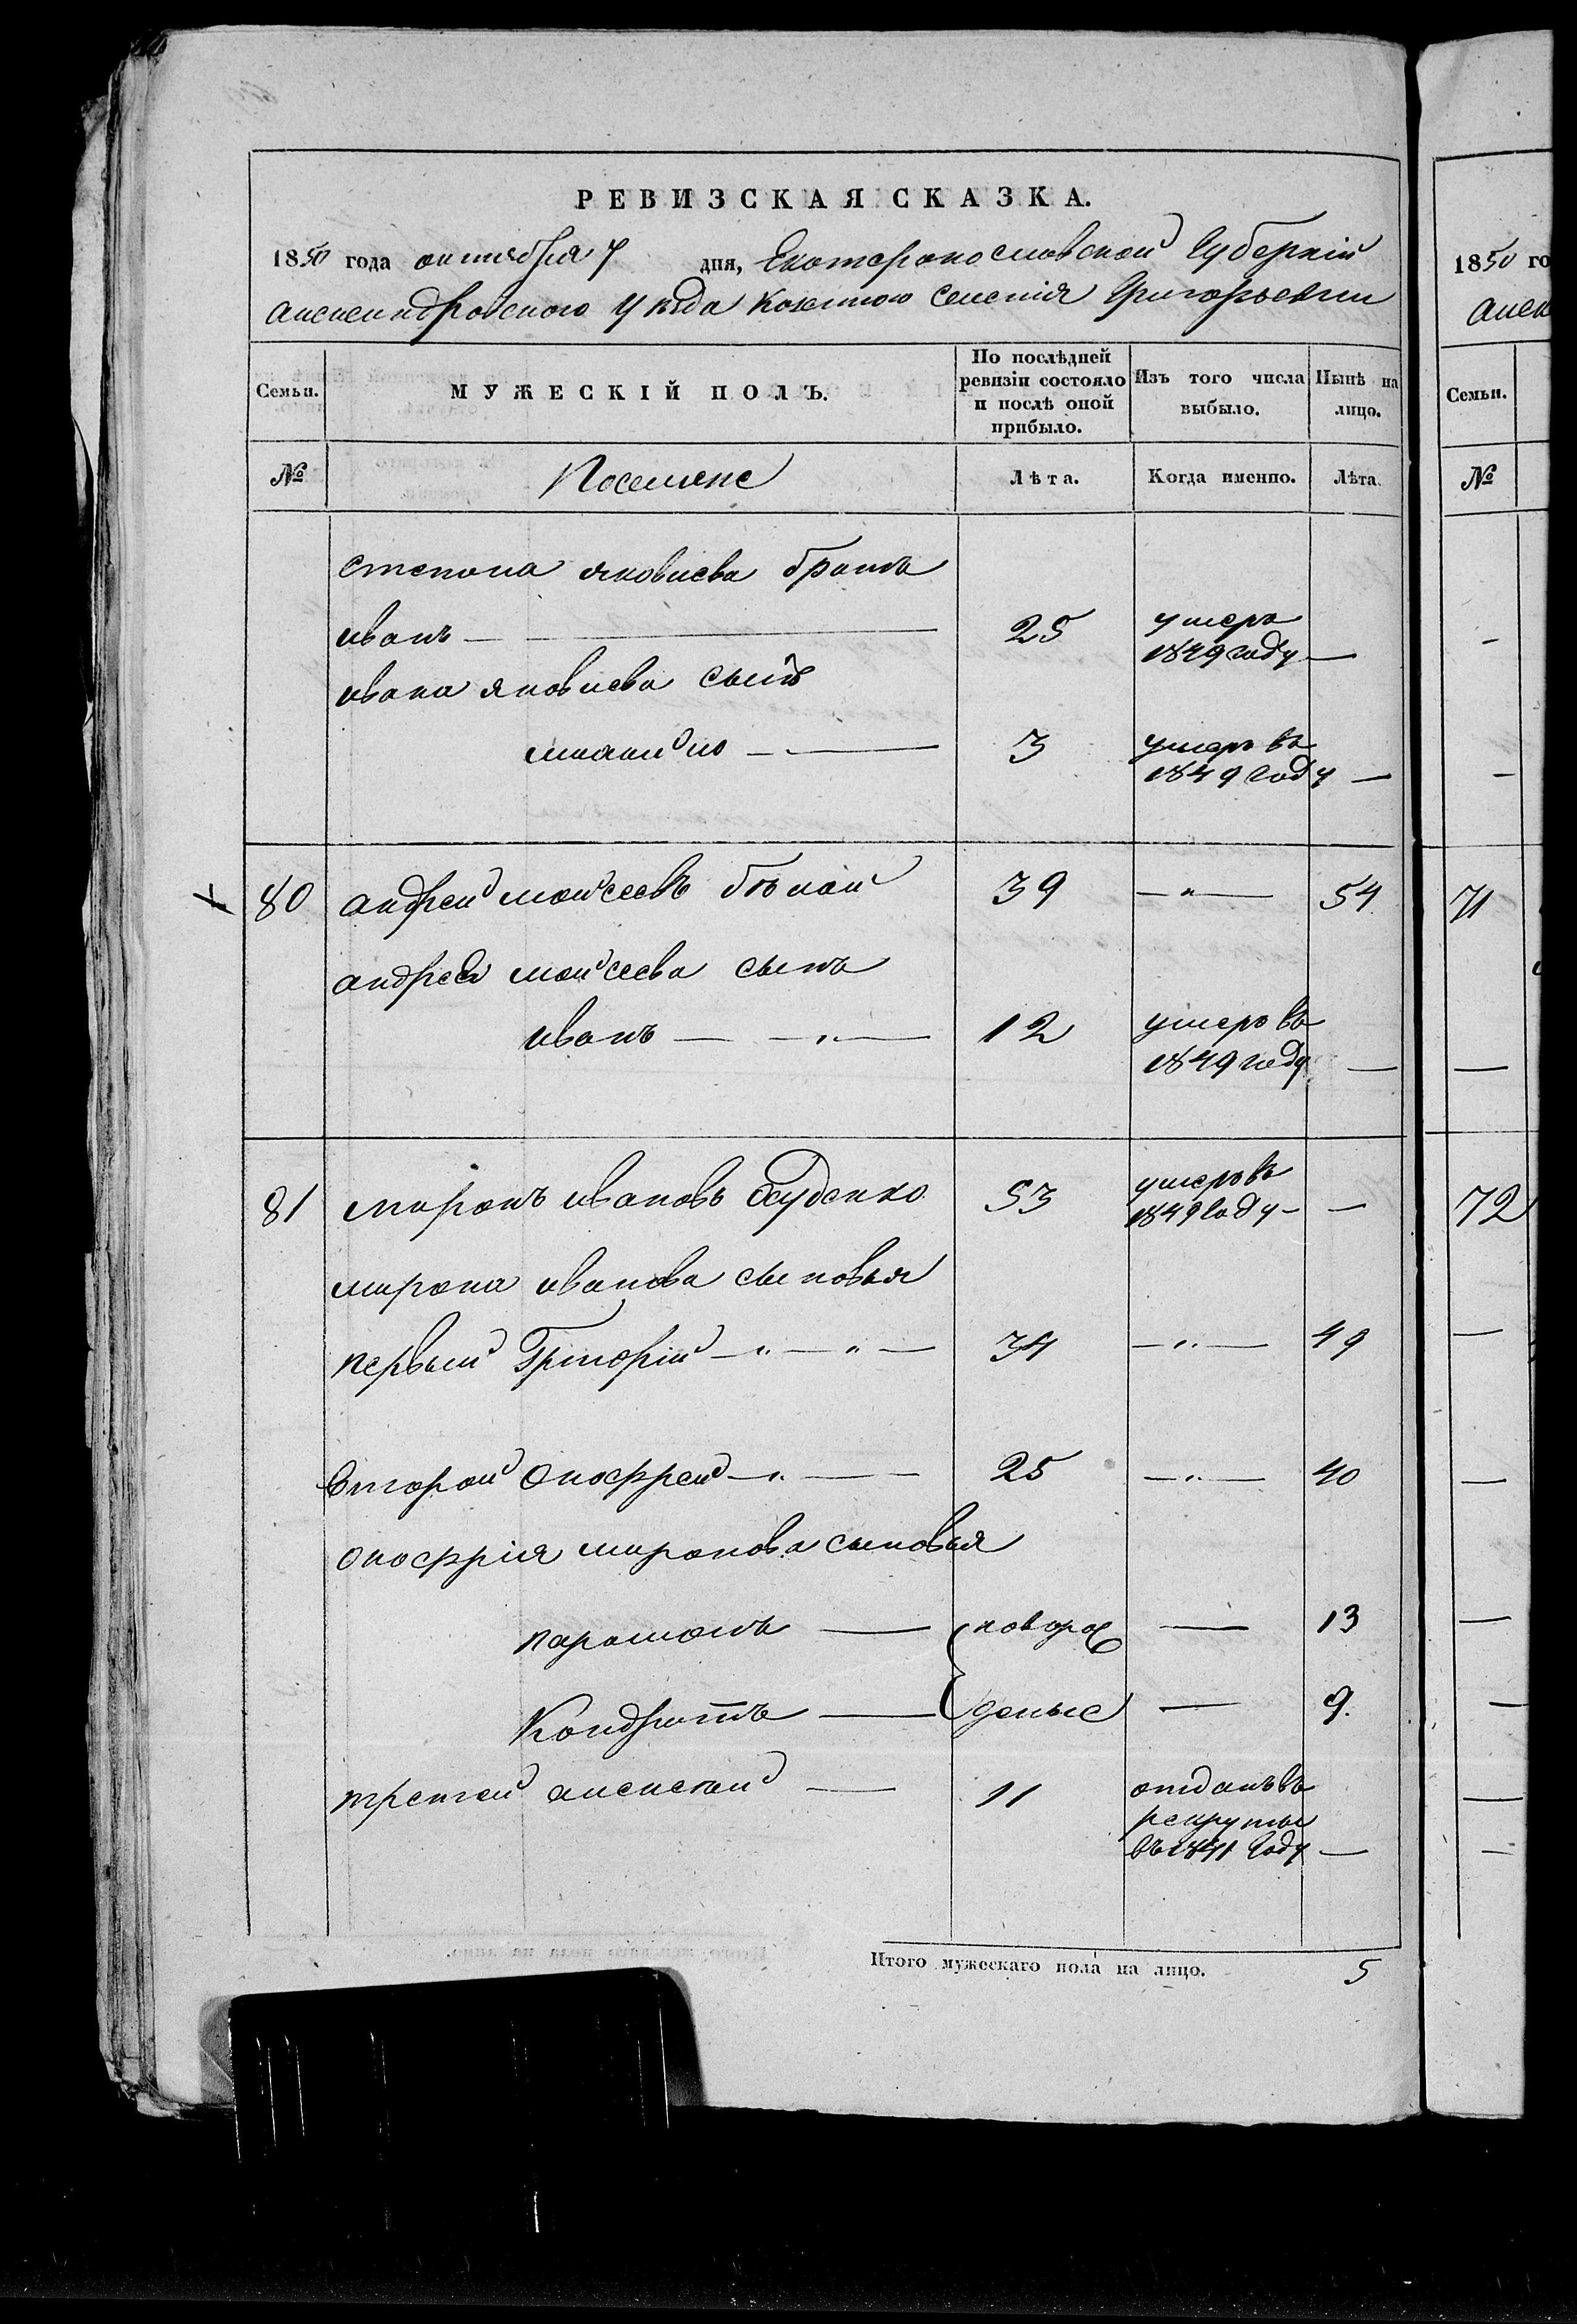 РЕВИЗСКАЯ СКАЗКА.
1850 года октября 7 дня, Екатеринославской Губерніи
Александровскаго Уѣзда Казеннаго Селенія Григорьевки
Семьи. МУЖЕСКІЙ ПОЛЪ. По послѣдней ревизіи состояло и послѣ оной прибыло. Изъ того числа выбыло. Нынѣ на лицо.
№ Поселяне Лѣта. Когда именно. Лѣта.
Степана Яковлева братъ
Иванъ — 25 умеръ 1849 году —
Ивана Яковлева сынъ
3 умеръ въ 1849 году —
80 Андрей Моисеевъ Бѣлай 39 — " — 54
Андрея Моисеева сынъ
Иванъ — " — 12 умеръ въ 1849 году —
81 Миронъ Ивановъ 53 умеръ въ 1849 году — —
Мирона Иванова сыновья
первый Григорій — " — " — 34 — " — 49
Второй Оноффрей — " — 25 — " — 40
Оноффрія Миронова сыновья
Парамонъ — новорож — 13
Кондратъ — деные — 9.
третей Алексѣй — 11 отданъ въ рекруты въ 1841 году —
Итого мужескаго пола на лицо. 5
1850 го
Алек
Семьи.
№
71
72